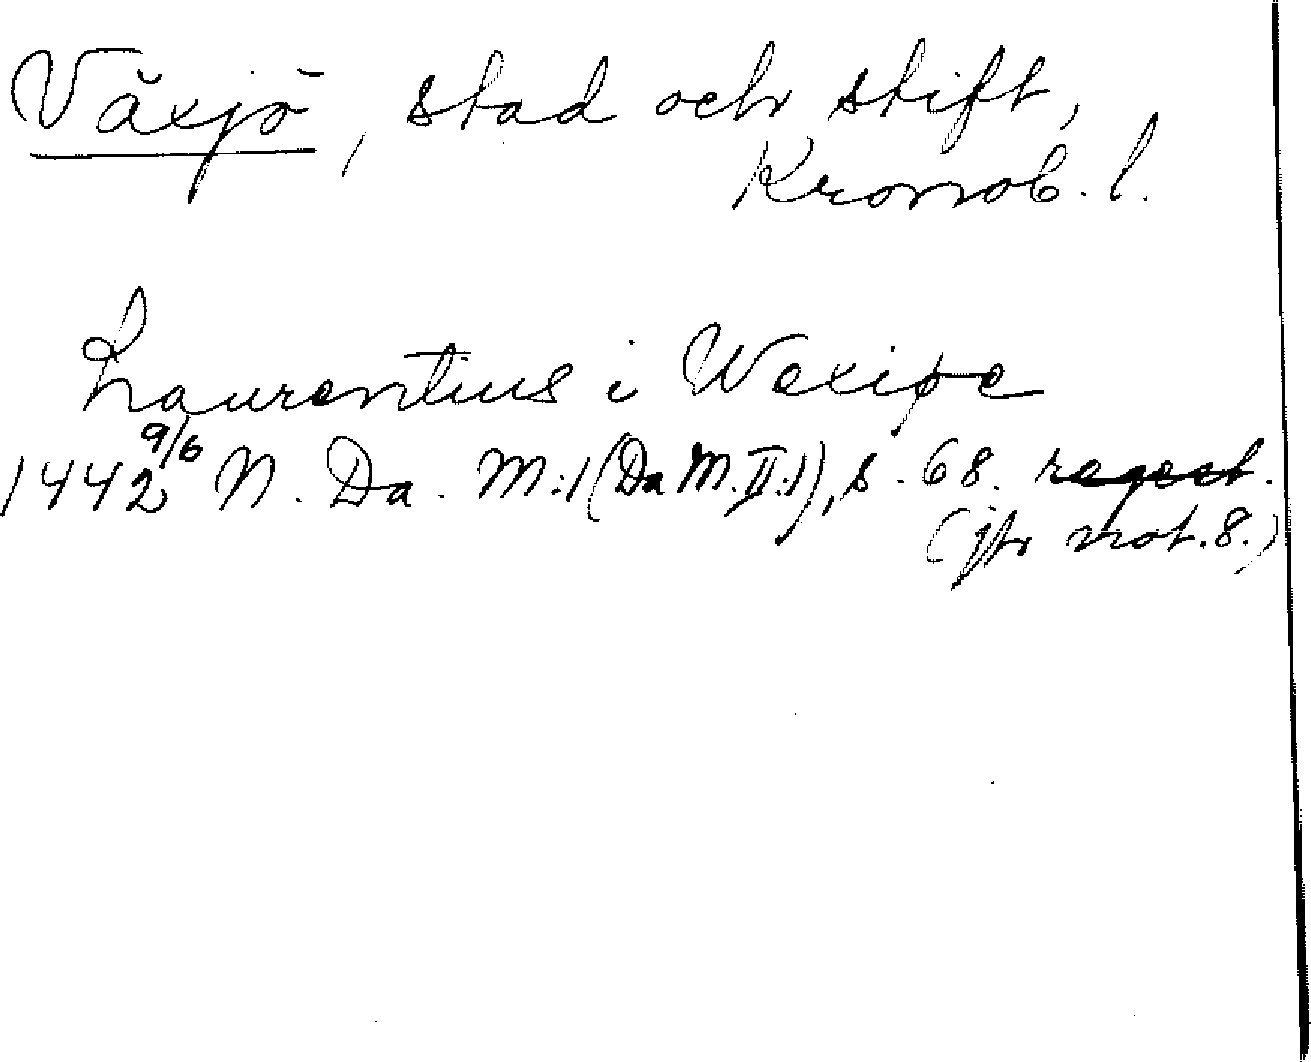 Växjö, stad och stift,
Kronob. l.
Laurentius i Wexiøe
1442 9/6 N. Da. M.:1 (Da M. II:1), s. 68. regest.
(jfr not. 8.)